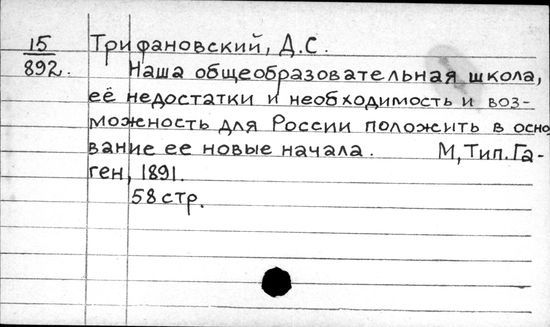 15 Трифановский, Д.С.
892. Наша общеобразовательная школа,
её недостатки и необходимость и воз-
можность для России положить в осно
вание ее новые начала. М, Тип. Га-
ген, 1891.
58 стр.